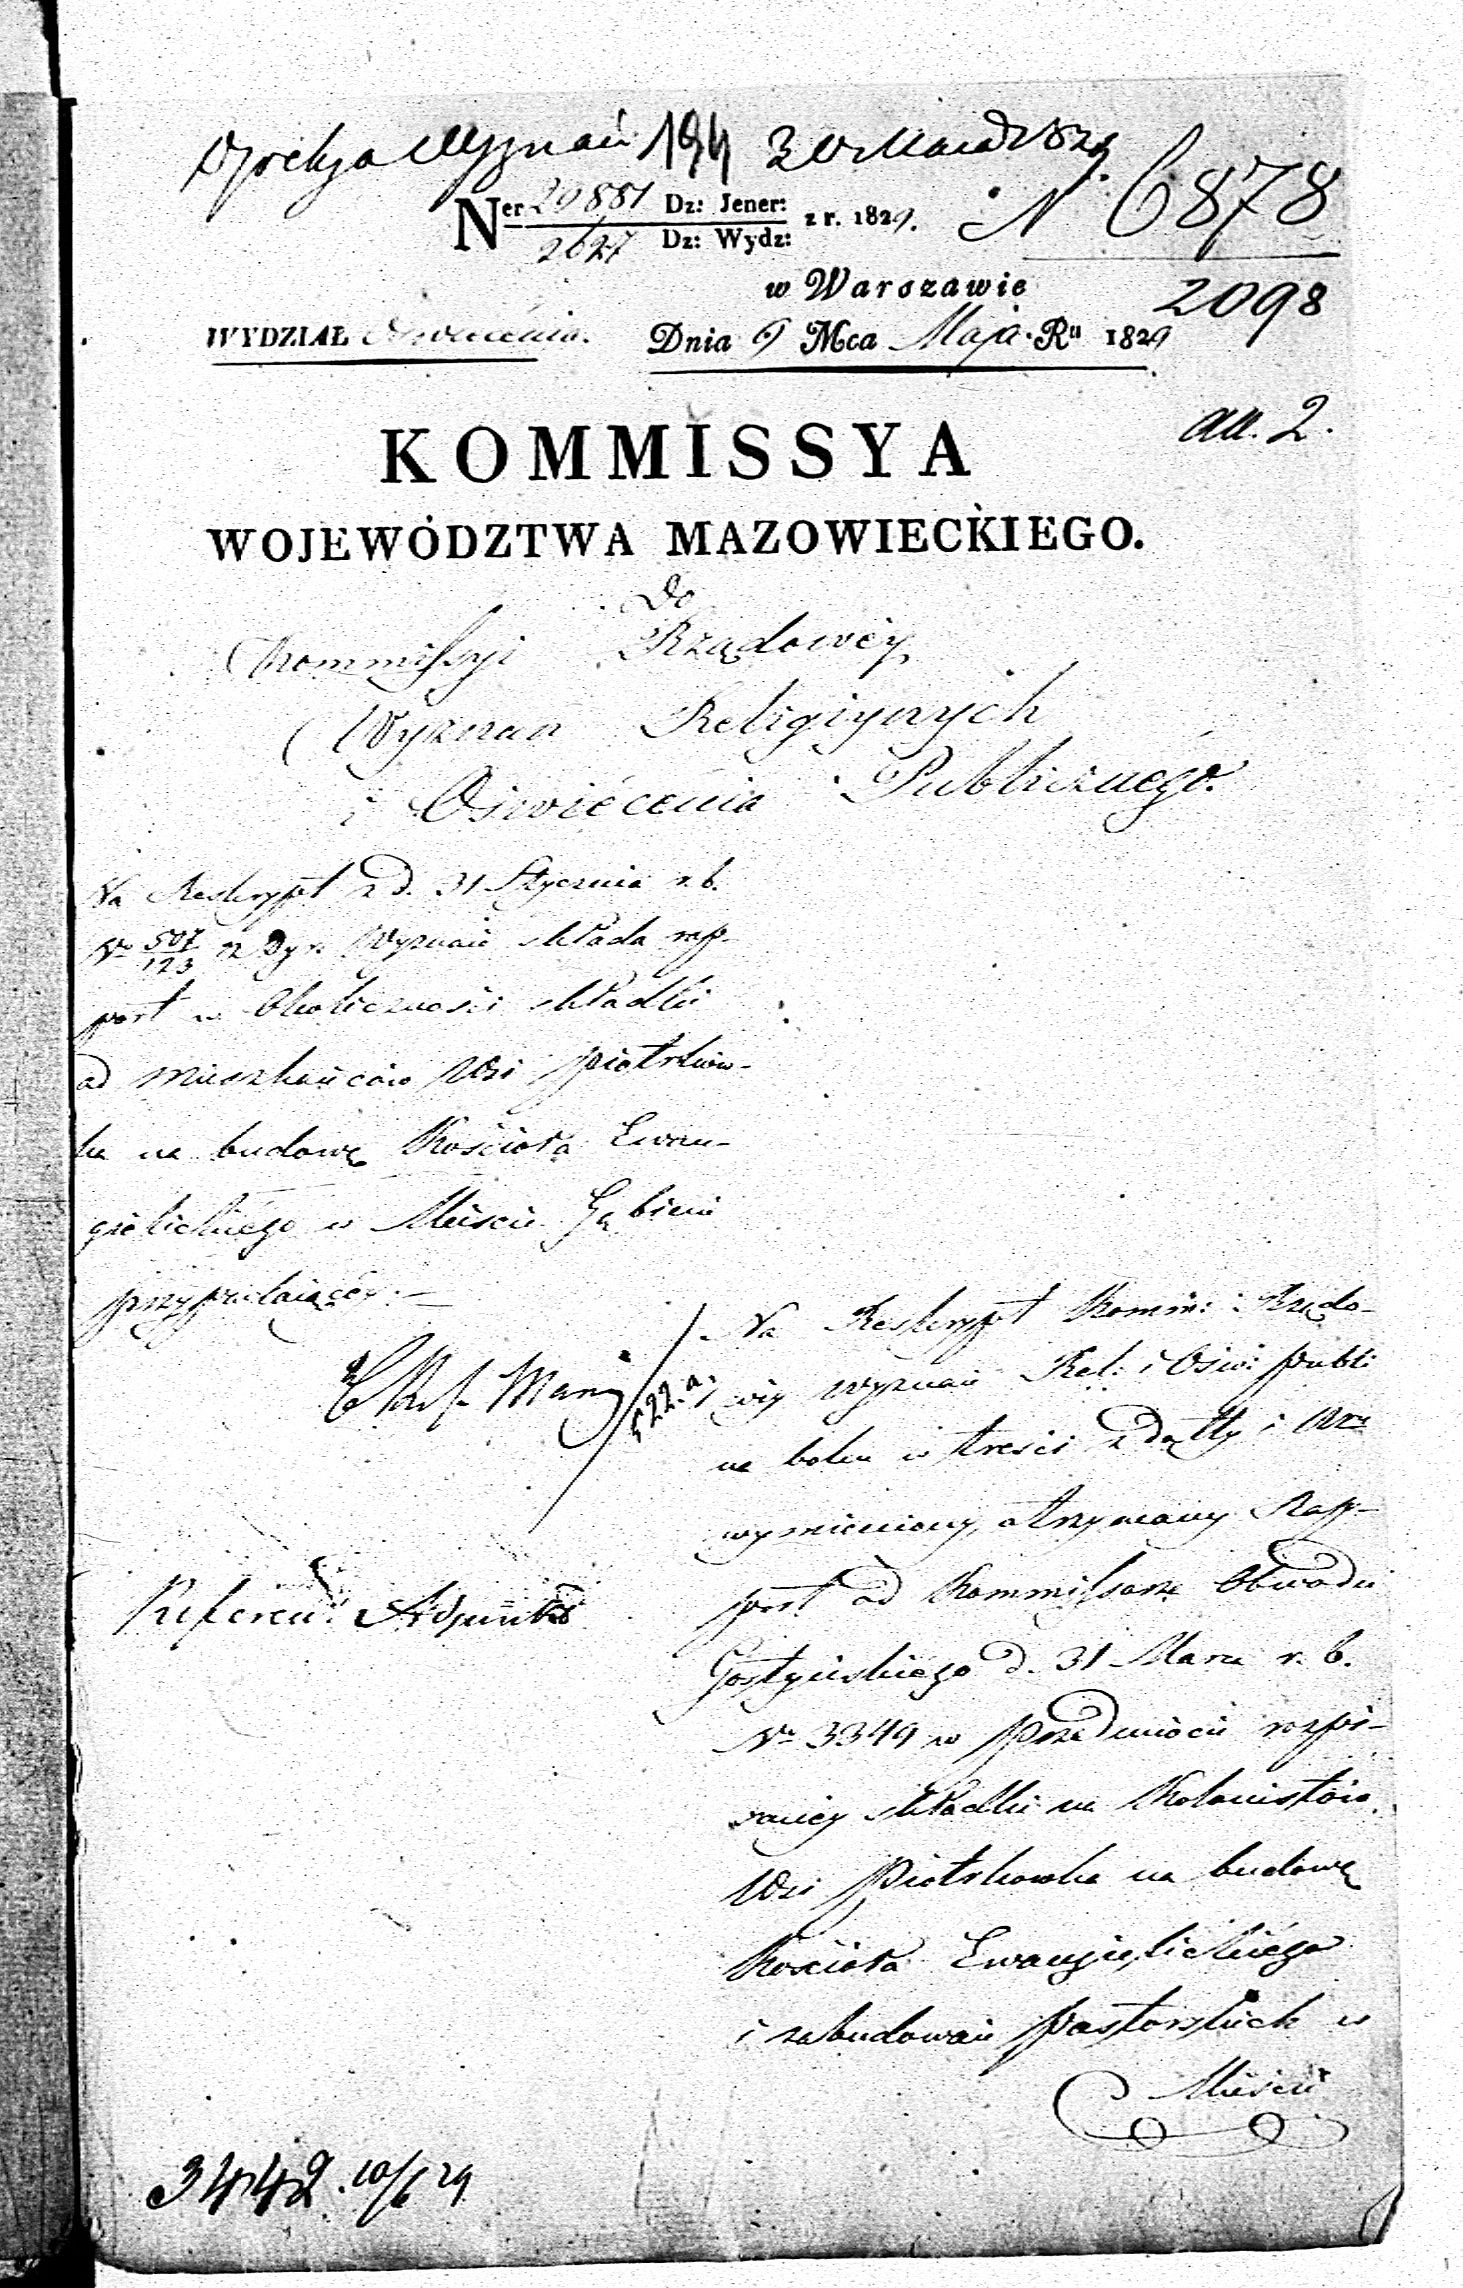 Dyrekcya Wyznań 194
N. 6878
2098
Ner 29881 Dz: Jener: z r. 1829.
2627 Dz: Wydz:
w Warszawie
WYDZIAŁ Oswiecenia. Dnia 9 Mca Maja Ru 1829
aa. 2.
KOMMISSYA
WOJEWÓDZTWA MAZOWIECKIEGO.
Do
Kommissyi Rządowéy
Wyznan Religiynych
i Oswiécenia Publicznégo.
Na Reskrypt z d. 31 Stycznia r. b.
No 507/123 z Dyr. Wyznań składa rap-
port w Okoliczności składki
od mieszkańców Wsi Piotrków-
ka na budowę Kościoła Ewan-
gielickiégo w Mieście Gąbinie
przypadaiącéy.
522. a.
Referen: Adjunkt
Na Reskrypt Komm: Rządo-
wéy Wyznań Rel: i Ośw: Publi
na boku w treści z daty i Nru
wymieniony, otrzymany Rap-
port od Kommissarza Obwodu
Gostyńskiégo d. 31 Marca r. b.
No 3349 w przedmiocie rozpi-
sanéy składki na Kolonistów
Wsi Piotrkowka na budowę
Kościoła Ewangielickiégo
i zabudowań Pastorskich w
Mieście
3442. 10/6 29